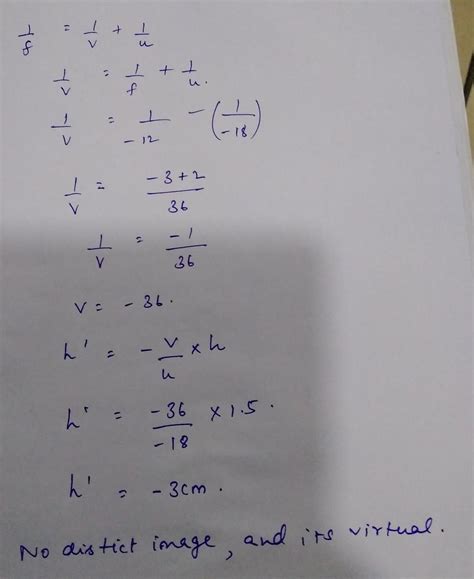 1/f = 1/v + 1/u
1/v = 1/f + 1/u.
1/v = 1/-12 - (1/-18)
1/v = -3+2/36
1/v = -1/36
v = -36.
h' = -v/u × h
h' = -36/-18 × 1.5.
h' = -3cm.
No distict image, and its virtual.